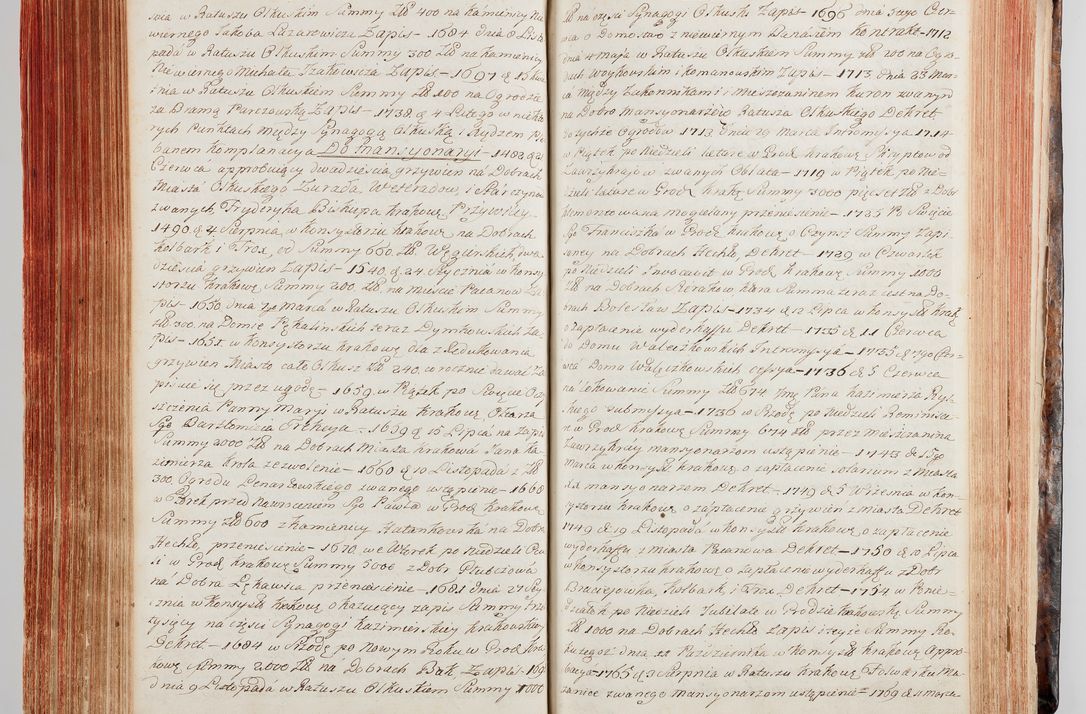 sca w Ratuszu Olkuskim Summy Złł 400 na kamienicy Nie
wiernego Jakoba Lazarowicza Zapis – 1684 dnia 8 Listo
pada w Ratuszu Olkuskim Summy 300 Złł na kamienicy
Niewiernego Michała Izakowicza Zapis – 1697 d. 15
nia w Ratuszu Olkuskim Summy Złł 100 na Ogrodzie
za Bramą Parczowską Zapis – 1738 d. 4 Lutego w niektó
rych Punktach między Synagogą Olkuską i Xiędzem Ple
banem komplanacya Do Mansyonaryi – 1483 d. 21
Czerwca approbuiący dwadzieścia grzywien na Dobrach
Miasta Olkuskiego Żurada, Witeradow, i Parczyna
zwanych Fryderyka Biskupa krakowę Przywiley
1490 d. 4 Sierpnia w konsystorzu krakowę na Dobrach
kolbark i Trox, od Summy 660 Złł Węgierskich, dwa
dzieścia grzywien Zapis – 1540 d. 24 Stycznia w konsy
storzu krakowę Summy 200 Złł na mieście Pacanow Za
pis – 1650 dnia Marca w Ratuszu Olkuskim Summy
Złł 300 na Domie Pękalinskich teraz Dymkowskich Za
pis – 1651 w konsystorzu krakowę dla zredukowania
grzywien Miasto całe Olkusz Złł 240 w rocznie dawać Za
pisuie się przez ugodę – 1659 w Piątek po Święcie Oczy
szczenia Panny Maryi w Ratuszu krakowę Ołtarza
Sgo Bartłomieia – 1659 d. 15 Lipca na Zapis
Summy 2000 Złł na Dobrach Miasta krakowa Jana ka
zimierza krola zezwolenie – 1660 d. 10 Listopada z Złł
300 Ogrodu Lenardowskiego zwanego ustąpienie – 1668
w Piątek przed Nawroceniem Sgo Pawła w Grod. krakowę
Summy Złł 600 z kamienicy Hatankowska na Dobra
Hechło przeniesienie – 1670 we Wtorek po Niedzieli Ocu
li w Grod. krakowę Summy 5000 z Dobr Głubczowa
na Dobra Lękawica przeniesienie – 1681 dnia 27 Sty
cznia w konsysto krakowę okazuiący zapis Summy Trzy
tysięcy na części Synagogi kazimierskiey krakowskiey
Dekret – 1684 w Srodę po Nowym Roku w Grod. kra
kowę Summy 2000 Złł na Dobrach Bąk Zapis – 169
dnia 9 Listopada w Ratuszu Olkuskiem Summy 1000
Złł na części Synagogi Olkuski Zapis 1696 dnia 5tego Czer
wca o Domostwo z niewiernym kontrakt – 1712
dnia 11 maja w Ratuszu Olkuskiem Summy Złł 200 na Ogro
dach Woykowskim i komanowskim Zapis – 1713 dnia 23 Mar
ca między Zakonnikami i Mieszczaninem kuron zwanym
na Dobro Mansyonarzow Ratusza Olkuskiego Dekret
do tychże Ogrodow 1713 dnia 29 Marca Intromisya 1714
w Piątek po Niedzieli Lætare w Grod. krakowę Skryptow od
Zawrzykraja w zwanych Oblata – 1719 w Piątek po Nie
dzieli Lætare w Grod. krakę Summy 3000 pięćset Złł z Dobr
kumontowana mogielany przeniesienie – 1725 Po Święcie
Sgo Franciszka w Grod. krakowę o Czynsz Summy Zapi
sowey na Dobrach Hechło, Dekret – 1729 w Czwartek
po Niedzieli Invocavit w Grod. krakowę Summy 1000
Złł na Dobrach Sierakow, ktora Summa teraz iest na Do
brach Bolesław Zapis – 1734 d. 12 Lipca w konsystę krakę
o zapłacenie wyderkaffu Dekret – 1735 d. 11 Czerwca
do Domu Waleczkowskich Intromisya – 1735 d. 27go Czer
wca Doma Wałęczkowskich cessya – 1736 d. 5 Czerwca
na lokowanie Summy Złł 674 Jmę Pana kazimierza Rys
kiego submisya – 1736 w Srodę po Niedzieli Reminisce
re w Grod. krakowę Summy 674 Złł przez mieszczanina
Zawrzykraiey mansyonarzom ustąpienie – 1743 d. 15go
Marca w konsystę krakowę o zapłacenie solarium z Miasta
dd mansyonarzom Dekret – 1749 d. 5 Września w kon
systorzu krakowę o zapłacenie grzywien z miasta Dekret
1749 d. 19 Listopada w konsystę krakowę o zapłacenie
wyderkaffu z miasta Pacanowa Dekret – 1750 d. 10 Lipca
w konsystorzu krakowę o zapłacenie wyderkaffu z Dobr
Braciejowka, kolbark, i Trox, Dekret – 1754 w Ponie
działek po Niedzieli Jubilate w Grodzie krakowskię Summy
Złł 1000 na Dobrach Hechło zapis i teyże Summy Ro
ku tegoż dnia 22 Października w konsystę krakowę Appro
bacya – 1765 d. 9 Sierpnia w Ratuszu krakowę Folwarku Ma
zaniec zwanego mansyonarzom ustąpienie – 1769 d. 11 marca